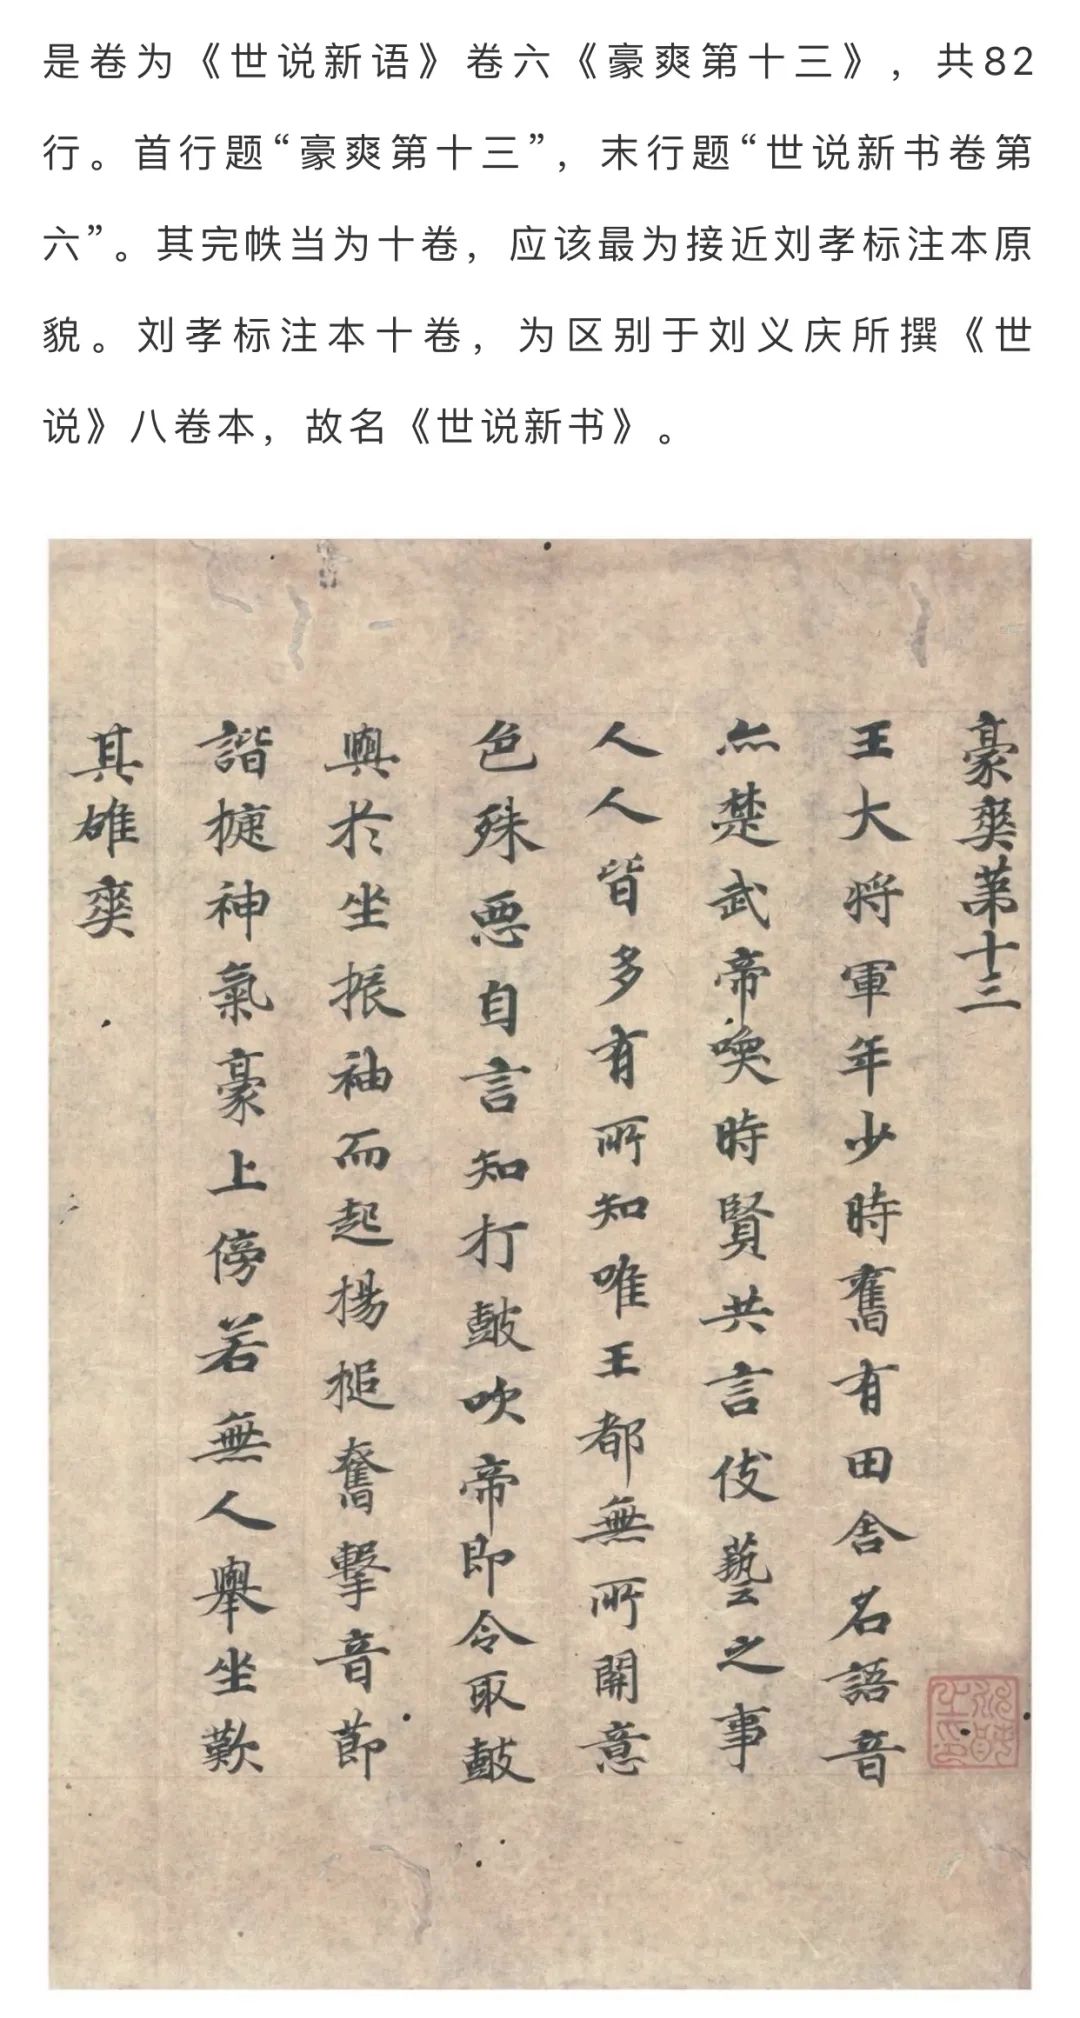 是卷为《世说新语》卷六《豪爽第十三》，共82
行。首行题“豪爽第十三”，末行题“世说新书卷第
六”。其完帙当为十卷，应该最为接近刘孝标注本原
貌。刘孝标注本十卷，为区别于刘义庆所撰《世
说》八卷本，故名《世说新书》。
豪爽第十三
王大将軍年少時舊有田舎名語音
亦楚武帝喚時賢共言伎藝之事
人人皆多有所知唯王都無所開意
色殊惡自言知打鼓吹帝即令取鼓
與於坐振袖而起楊槌奮擊音節
諧捷神氣豪上傍若無人舉坐歎
其雄爽